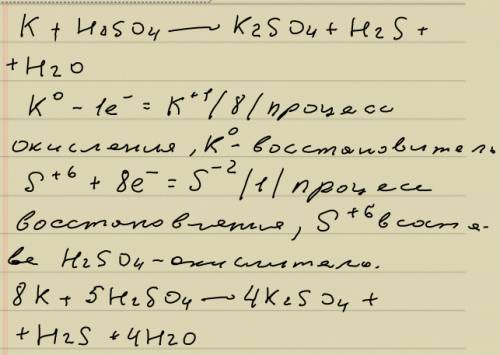 K + H2SO4 — K2SO4 + H2S +
+ H2O
K⁰ – 1e⁻ = K⁺¹ /8/ процесс
окисления, K⁰ – восстановитель
S⁺⁶ + 8e⁻ = S⁻² /1/ процесс
восстановления, S⁺⁶ в соста-
ве H2SO4 – окислитель.
8K + 5H2SO4 — 4K2SO4 +
+ H2S + 4H2O